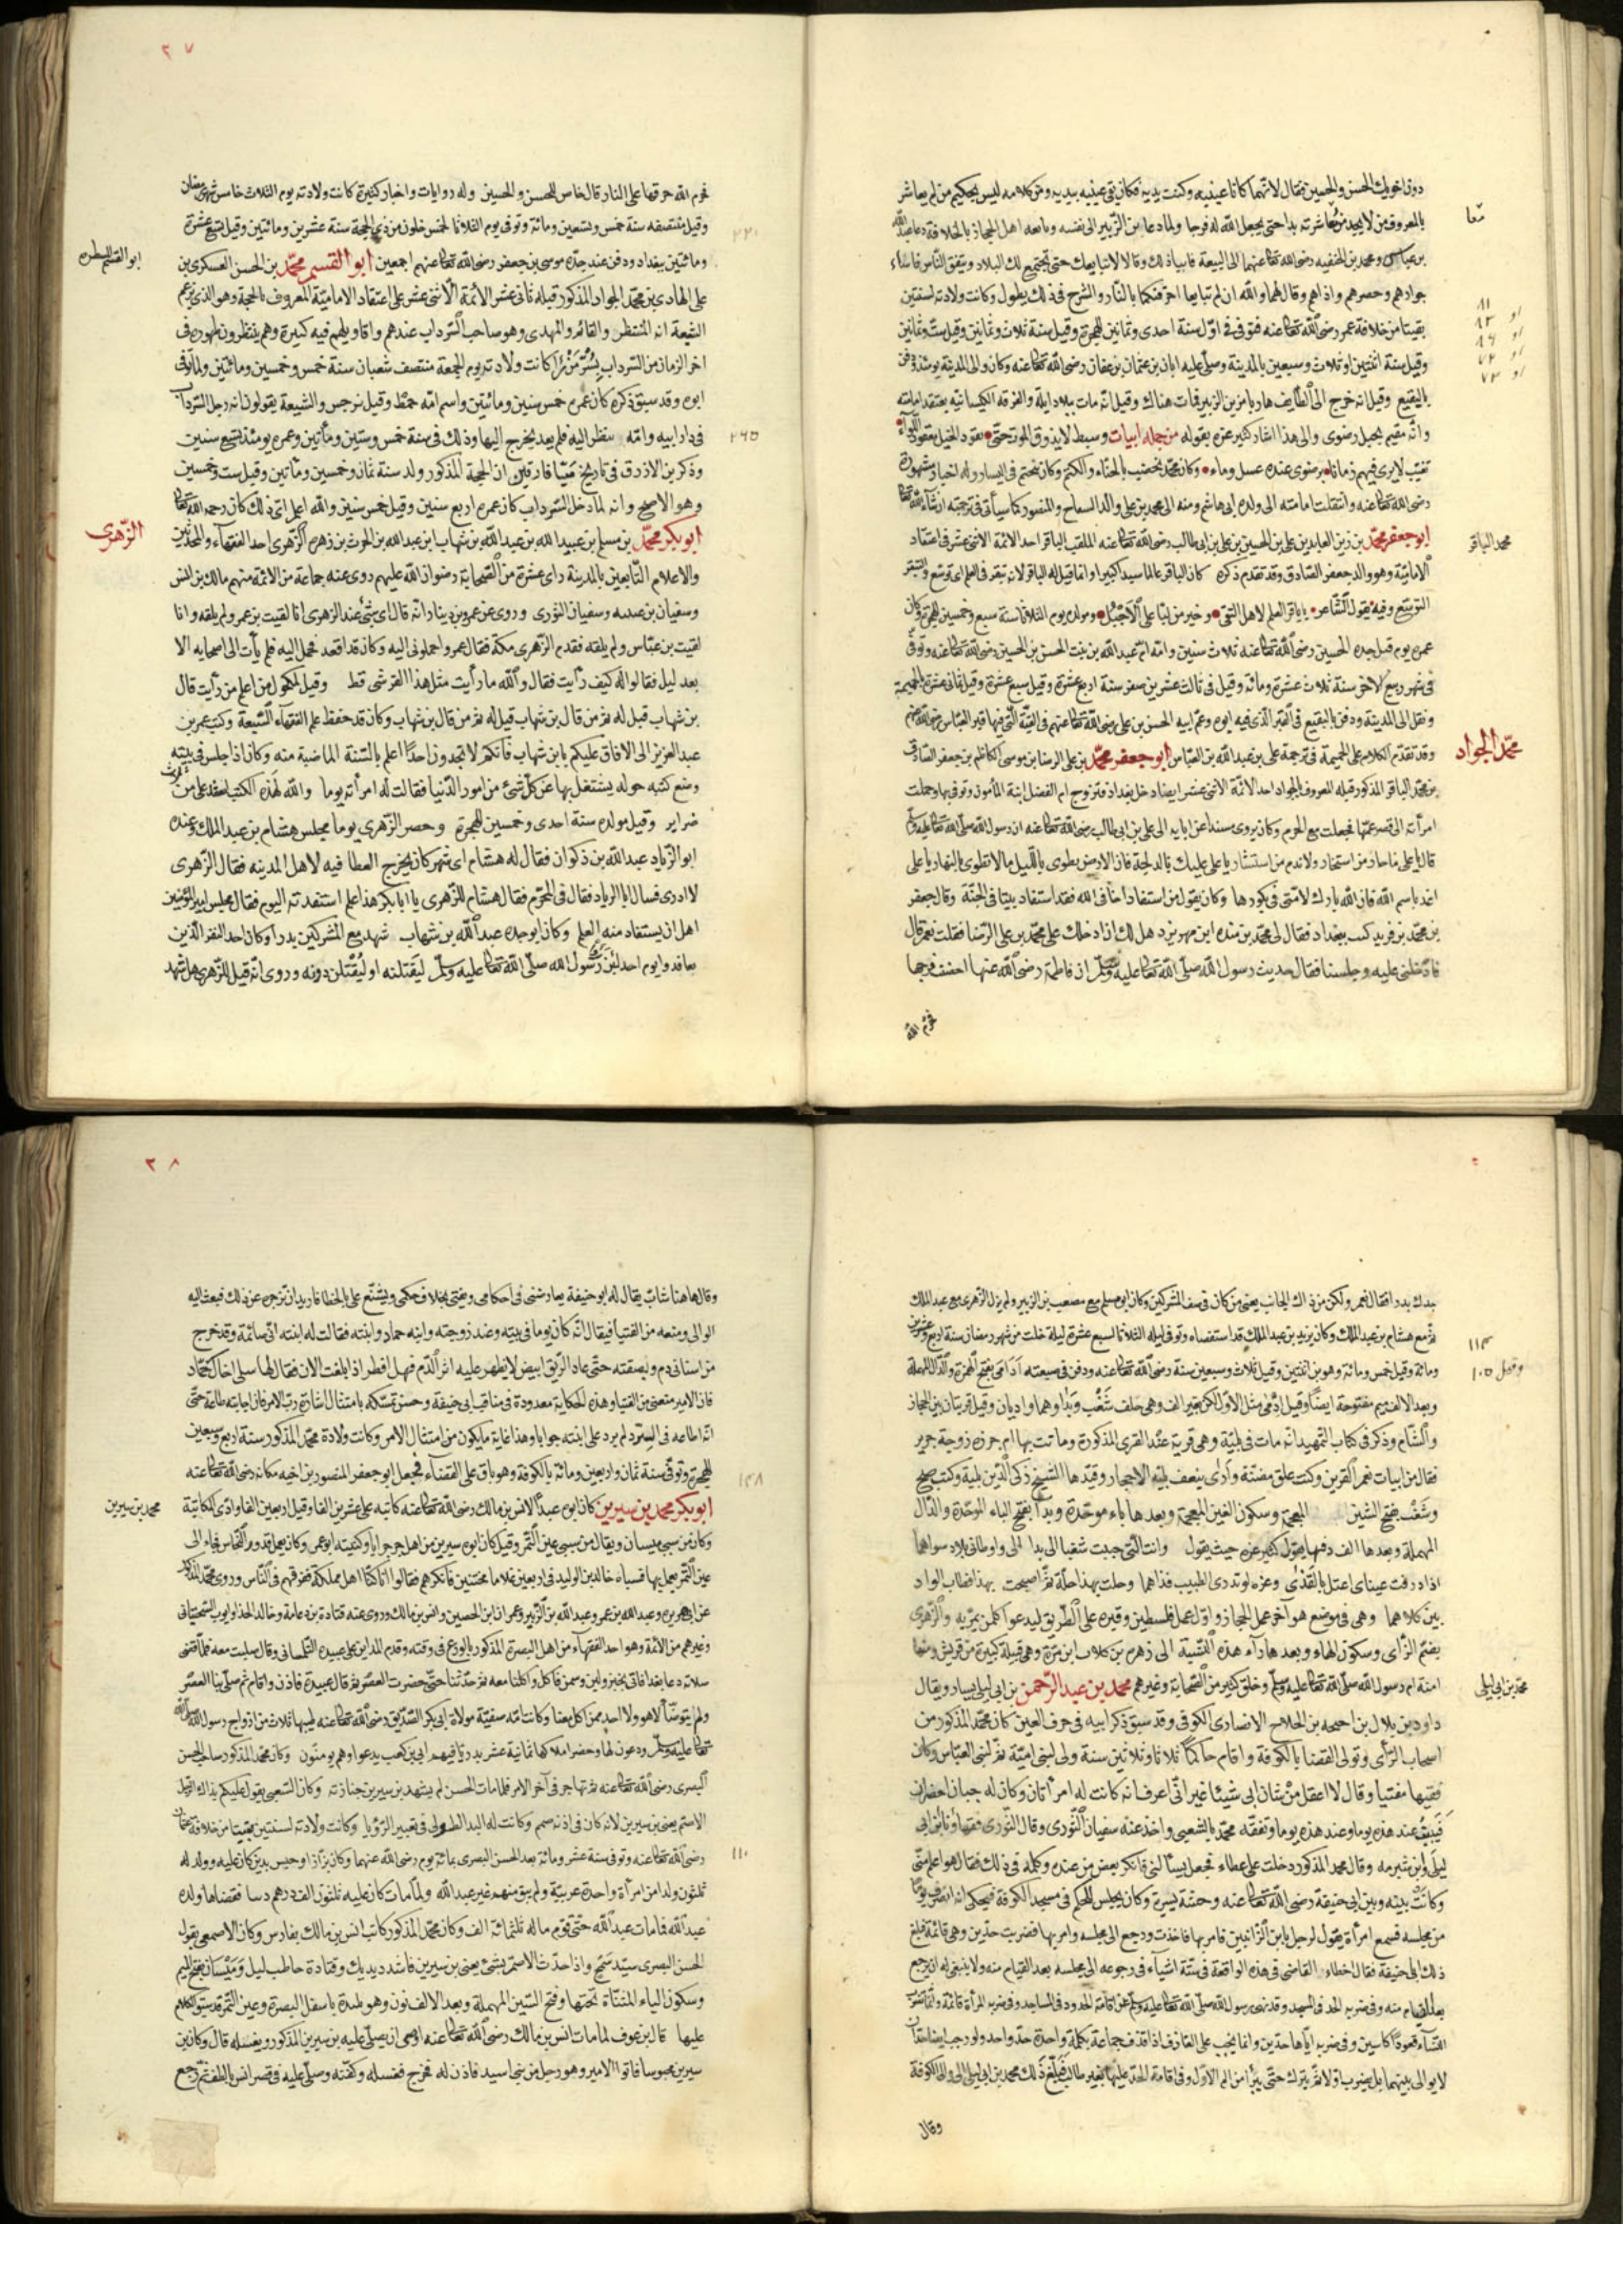 دون اخويك الحسن والحسين فقال لانهما كانا عينيه وكنت يديه فكان يقى عينيه بيديه ومن كلامه ليس بحكيم من لم يعاشر
معا
بالمعروف من لا يجد من معاشرته بدا حتى يجعل الله له فرجا ولما دعا بن الزبير الى نفسه وبايعه اهل الحجاز بالخلافة دعا عبد الله
بن عباس ومحمد بن الحنفيه رضى الله تعالى عنهما الى البيعة فابيا ذلك وقالا لا نبايعك حتى تجتمع لك البلاد ويتفق الناس فاساء
جوارهم وحصرهم واذاهم وقال لهما والله ان لم تبايعا احرقتكما بالنار والشرح فى ذلك يطول وكانت ولادته لسنتين
بقيتا من خلافة عمر رضى الله تعالى عنه فتوفى فى اول سنة احدى وثمانين للهجرة وقيل سنة ثلاث وثمانين وقيل ست وثمانين
٨١
او ٨٣
او ٨٦
او ٧٢
او ٧٣
وقيل سنة اثنتين او ثلاث وسبعين بالمدينة وصلى عليه ابان بن عثمان بن عفان رضى الله تعالى عنه وكان والى المدينة يومئذ ودفن
بالبقيع وقيل انه خرج الى الطايف هاربا من بن الزبير فمات هناك وقيل انه مات ببلاد ايلة والفرقه الكيسانيه يعتقد امامته
وانه مقيم بجبل رضوى والى هذا اشار كثير عزه بقوله من جمله ابيات وسبط لا يذوق الموت حتى يقود الخيل يقدمها اللواء
تغيب لا يرى فيهم زمانا برضوى عنده عسل وماء وكان محمد يخضب بالحناء والكتم وكان يتختم فى اليسار وله اخبار مشهورة
رضى الله تعالى عنه وانتقلت امامته الى ولده ابى هاشم ومنه الى محمد بن على والد السفاح والمنصور كما سيأتى فى ترجمته ان شاء الله تعالى
محمد الباقر
ابو جعفر محمد بن زين العابدين على بن الحسين بن على بن ابى طالب رضى الله تعالى عنه الملقب الباقر احد الائمة الاثنى عشر فى اعتقاد
الامامية وهو والد جعفر الصادق وقد تقدم ذكره كان الباقر عالما سيدا كبيرا وانما قيل له الباقر لانه تبقر فى العلم اى توسع والتبقر
التوسع وفيه يقول الشاعر يا باقر العلم لاهل التقى وخير من لبّا على الاجبُل ومولده يوم الثلاثا سنة سبع وخمسين للهجرة وكان
عمره يوم قتل جده الحسين رضى الله تعالى عنه ثلاث سنين وامه ام عبد الله بن بنت الحسن بن الحسين رضى الله تعالى عنه وتوفى
فى شهر ربيع الاخر سنة ثلاث عشرة ومائة وقيل فى ثالث عشرين صفر سنة اربع عشرة وقيل سبع عشرة وقيل ثمانى عشرة بالحميمة
ونقل الى المدينة ودفن بالبقيع فى القبر الذى فيه ابوه وعم ابيه الحسن بن على رضى الله تعالى عنهم فى القبة التى فيها قبر العباس رضى الله عنهم
محمد الجواد
وقد تقدم الكلام على الحميمة فى ترجمة على بن عبد الله بن العباس ابو جعفر محمد بن على الرضا بن موسى الكاظم بن جعفر الصادق
بن محمد الباقر المذكور قبله المعروف بالجواد احد الائمة الاثنى عشر ايضا دخل بغداد فتزوج ام الفضل ابنة المأمون وتوفى بها وحملت
امرأته الى قصر عمها فجعلت مع الحرم وكان يروى مسندا عن ابايه الى على بن ابى طالب رضى الله تعالى عنه ان رسول الله صلى الله تعالى عليه وسلم
قال يا على ما حار من استخار ولا ندم من استشار يا على عليك بالدلجة فان الارض تطوى بالليل ما لا تطوى بالنهار يا على
اغد باسم الله فان الله بارك لامتى فى بكورها وكان يقول من استفاد اخا فى الله فقد استفاد بيتا فى الجنة وقال جعفر
بن محمد بن فريد كنت ببغداد فقال لى محمد بن منده ابن مهر يزد هل لك ان ادخلك على محمد بن على الرضا فقلت نعم قال
فادخلنى عليه وجلسنا فقال حديث رسول الله صلى الله تعالى عليه وسلم ان فاطمة رضى الله عنها احصنت فرجها
فحرم الله
٢٧
فحرم الله حرقها على النار قال خاص للحسن والحسين وله روايات واخبار كثيرة كانت ولادته يوم الثلاث خامس شهر رمضان
وقيل منتصفه سنة خمس وتسعين ومائة وتوفى يوم الثلاثا لخمس خلون من ذى الحجة سنة عشرين ومائتين وقيل تسع عشرة
٢٢٠
ومائتين ببغداد ودفن عند جده موسى بن جعفر رضى الله تعالى عنهم اجمعين ابو القسيم محمد بن الحسن العسكرى بن
ابو القسيم المنتظره
على الهادى بن محمد الجواد المذكور قبله ثانى عشر الأئمة الاثنى عشر على اعتقاد الامامية المعروف بالحجة وهو الذى يزعم
الشيعة انه المنتظر والقائم والمهدى وهو صاحب السرداب عندهم واقاويلهم فيه كبيرة وهم ينتظرون ظهوره فى
اخر الزمان من السرداب بسُرّ مَنْ رَأَ كانت ولادته يوم الجمعة منتصف شعبان سنة خمس وخمسين ومائتين ولما توفى
ابوه وقد سبق ذكره كان عمره خمس سنين ومائتين واسم امه خمط وقيل نرجس والشيعة يقولون انه دخل السرداب
فى دار ابيه وامه تنظر اليه فلم يعد يخرج اليها وذلك فى سنة خمس وستين ومأتين وعمره يومئذ تسع سنين
٢٦٥
وذكر بن الازرق فى تاريخ ميّا فارقين ان الحجة المذكور ولد سنة ثمان وخمسين ومأتين وقيل ست وخمسين
وهو الاصح وانه لما دخل السرداب كان عمره اربع سنين وقيل خمس سنين والله اعلم اى ذلك كان رحمه الله تعالى
الزهرى
ابو بكر محمد بن مسلم بن عبيد الله بن عبد الله بن شهاب ابن عبد الله بن الحرث بن زهره الزهرى احد الفقهاء والمحدثين
والاعلام التابعين بالمدينة راى عشرة من الصحابة رضوان الله عليهم روى عنه جماعة من الائمة منهم مالك بن انس
وسفيان بن عيينه وسفيان الثورى وروى عن عمرو بن دينار انه قال اى شئ عند الزهرى انا لقيت بن عمر ولم يلقه وانا
لقيت بن عباس ولم يلقه فقدم الزهرى مكة فقال عمرو احملونى اليه وكان قد اقعد فحمل اليه فلم يأت الى اصحابه الا
بعد ليل فقالوا له كيف رأيت فقال والله ما رأيت مثل هذا القرشى قط وقيل لمكحول من اعلم من رأيت قال
بن شهاب قيل له ثم من قال بن شهاب قيل له ثم من قال بن شهاب وكان قد حفظ علم الفقهاء السبعة وكتب عمر بن
عبد العزيز الى الافاق عليكم بابن شهاب فانكم لا تجدون احدًا اعلم بالسنة الماضية منه وكان اذا جلس فى بيته
وضع كتبه حوله يشتغل بها عن كل شئ من امور الدنيا فقالت له امرأته يوما والله لهذه الكتب اشد على من ثلاث
ضراير وقيل مولده سنة احدى وخمسين للهجرة وحضر الزهري يوما مجلس هشام بن عبد الملك وعنده
ابو الزياد عبد الله بن ذكوان فقال له هشام اى شهر كان يخرج العطا فيه لاهل المدينه فقال الزهرى
لا ادرى فسال ابا الزياد فقال فى المحرم فقال هشام للزهرى يا ابا بكر هذا علم استفدته اليوم فقال مجلس امير المؤمنين
اهل ان يستفاد منه العلم وكان ابو جده عبد الله بن شهاب شهد مع المشركين بدرا وكان احد النفر الذين
تعاقدوا يوم احد لئن رأوا رسول الله صلى الله تعالى عليه وسلم ليَقتلنه او ليُقْتَلن دونه وروى انه قيل للزهرى هل شهد
جدك بدرا فقال نعم ولكن من ذلك الجانب يعنى من كان فى صف المشركين وكان ابو مسلم مع مصعب بن الزبير ولم يزل الزهرى مع عبد الملك
ثم مع هشام بن عبد الملك وكان يزيد بن عبد الملك قد استقضاه وتوفى ليله الثلاثا لسبع عشرة ليلة خلت من شهر رمضان سنة اربع وعشرين
١١٣
وقيل ١٠٥
ومائة وقيل خمس ومائة وهو بن اثنتين وقيل ثلاث وسبعين سنة رضى الله تعالى عنه ودفن فى ضيعته اَدَامَى بفتح الهمزة والدال المهملة
وبعد الالف ميم مفتوحة ايضا وقيل اِدْمَى مثل الاول لكن بغير الف وهى خلف شَغْب وبَدا وهما واديان وقيل قريتان بين الحجاز
والشام وذكر فى كتاب التمهيد انه مات فى بلية وهى قرية عند القرى المذكورة وماتت بها ام حرزه زوجة جرير
فقال من ابيات نعم القرين وكنت علق مضنة وارى بنعف بلية الاحجار وقيدها الشيخ ذكى الدين بلية وكتب صح
وشَغْب بفتح الشين المعجمة وسكون الغين المعجمة وبعدها باء موحدة وبدا بفتح الباء الموحدة والدال
المهملة وبعدها الف وفيها يقول كثير عزه حيث يقول وانت التى حببت شغبا الى بدا الى واوطانى بلاد سواهما
اذا ذرفت عيناى اعتل بالقذى وعزه لو تدرى الطبيب قذاهما وحلت بهذا حلة ثم اصبحت بهذا فطاب الواد
يين كلاهما وهى فى موضع هو آخر عمل الحجاز واول عمل فلسطين وقبره على الطريق ليدعو كل من يمر به والزهرى
بضم الزاى وسكون الهاء وبعدها رآء هذه النسبة الى زهره بن كلاب ابن مرة وهى قبيلة كبيرة من قريش ومنها
امنة ام رسول الله صلى الله تعالى عليه وسلم وخلق كثير من الصحابة وغيرهم محمد بن عبد الرحمن بن ابى ليلى يسار ويقال
محمد بن ابى ليلى
داود بن بلال بن احيحه بن الجلاح الانصارى الكوفى وقد سبق ذكر ابيه فى حرف العين كان محمد المذكور من
اصحاب الرأى وتولى القضا بالكوفة واقام حاكمًا ثلاثا وثلاثين سنة ولى لبنى امية ثم لبنى العباس وكان
فقيها مفتيا وقال لا اعقل مِنْ شان ابى شيئا غير انى اعرف انه كانت له امرأتان وكان له جبان اخضران
فيبيت عند هذه يوما وعند هذه يوما وتفقه محمد بالشعبى واخذ عنه سفيان الثورى وقال الثورى فقهاؤنا بن ابى
ليلى وابن شبرمه وقال محمد المذكور دخلت على عطاء فجعل يسألنى فانكر بعض من عنده وكلمه فى ذلك فقال هو اعلم منى
وكانت بينه وبين ابى حنيفة رضى الله تعالى عنه وحشة يسيرة وكان يجلس للحكم فى مسجد الكوفة فيحكى انه انصرف يوما
من مجلسه فسمع امرأة يقول لرجل يا بن الزانيين فامر بها فاخذت ورجع الى مجلسه وامر بها فضربت حدين وهى قائمة فبلغ
ذلك ابى حنيفة فقال اخطاء القاضى فى هذه الواقعة فى ستة اشياء فى رجوعه الى مجلسه بعد القيام منه ولا ينبغى له ان يرجع
بعد القيام منه وفى ضربه الحد فى المسجد وقد نهى رسول الله صلى الله تعالى عليه وسلم عن اقامة الحدود فى المساجد وفى ضربه المرأة قائمة وانما تضرب
النسآء قعودًا كاسين وفى ضربه اياها حدين وانما يجب على القاذف اذا قذف جماعة بكلمة واحدة حد واحد ولو وجب ايضا حدان
لا يوالى بينهما بل يضرب اولا ثم يترك حتى يبرأ من الم الاول وفى اقامة الحد عليها بغير طالب فبلغ ذلك محمد بن ابى ليلى الى والى الكوفة
وقال
٢٨
وقال هاهنا شابّ يقال له ابو حنيفة يعارضنى فى احكامى ويفتى بخلاف حكمى ويشنع على بالخطا فاريد ان تزجره عن ذلك فبعث اليه
الوالى ومنعه من الفتيا فيقال انه كان يوما فى بيته وعند زوجته وابنه حماد وابنته فقالت له ابنته انى صائمة وقد خرج
من اسنانى دم وبصقته حتى عاد الريق ابيض لا يظهر عليه اثر الدم فهل افطر اذا بلغت الان فقال لها سلى اخاك حماد
فان الامير منعنى من الفتيا وهذه الحكاية معدودة فى مناقب ابى حنيفة وحسن تمسكه بامتثال اشارة رب الامر فان اجابته طاعة حتى
انه اطاعه فى السر ولم يرد على ابنته جوابا وهذا غاية ما يكون من امتثال الامر وكانت ولادة محمد المذكور سنة اربع وسبعين
للهجرة وتوفى سنة ثمان واربعين ومائة بالكوفة وهو باق على القضاء فجعل ابو جعفر المنصور بن اخيه مكانه رضى الله تعالى عنه
١٤٨
محمد بن سيرين
ابو بكر محمد بن سيرين كان ابوه عبدًا لانس بن مالك رضى الله تعالى عنه كاتبه على عشرين الفا وقيل اربعين الفا وادى المكاتبة
وكان من سبى ميسان ويقال من سبى عين التمر وقيل كان ابوه سيرين من اهل جرجرايا وكنيته ابو عمره وكان يعمل قدور النحاس فجاء الى
عين التمر يعمل بها فسباه خالد بن الوليد فى اربعين غلاما مختنين فانكرهم فقالوا انا كنا اهل مملكة ففرقهم فى الناس وروى محمد المذكور
عن ابى هريره وعبد الله بن عمر وعبد الله بن الزبير وعمران ابن الحسين وانس بن مالك وروى عنه قتادة بن دعامة وخالد الحذا وايوب السختيانى
وغيرهم من الائمة وهو احد الفقهاء من اهل البصرة المذكور بالورع فى وقته وقدم المداين على عبيده السلمانى وقال صليت معه فلما قضى
صلاته دعا بغداء فاتى بخبز ولبن وسمن فاكل واكلنا معه ثم جلسنا حتى حضرت العصر ثم قال عبيدة فاذن واقام ثم صلى بنا العصر
ولم يتوضأ لا هو ولا احد ممن اكل معنا وكانت امه صفية مولاة ابى بكر الصديق رضى الله تعالى عنه طيبها ثلاث من ازواج رسول الله صلى الله
تعالى عليه وسلم ودعون لها وحضر املاكها ثمانية عشر بدريا فيهم ابى بن كعب يدعو وهم يومنون وكان محمد المذكور صاحب الحسن
البصرى رضى الله تعالى عنه ثم تهاجر فى آخر الامر فلما مات الحسن لم يشهد بن سيرين جنازته وكان الشعبى يقول عليكم بذاك الرجل
الاصم يعنى بن سيرين لانه كان فى اذنه صمم وكانت له اليد الطولى فى تعبير الرؤيا وكانت ولادته لسنتين بقيتا من خلافة عثمان
رضى الله تعالى عنه وتوفى سنة عشر ومائة بعد الحسن البصرى بمائة يوم رضى الله عنهما وكان بزازا وحبس بدين كان عليه وولد له
١١٠
ثلثون ولدا من امرأة واحدة عربية ولم يبق منهم غير عبد الله ولما مات كان عليه ثلثون الف درهم دينا فقضاها ولده
عبد الله فما مات عبد الله حتى قوم ماله ثلثمائة الف وكان محمد المذكور كاتب انس بن مالك بفارس وكان الاصمعى يقول
الحسن البصرى سيد سمح واذا حدث الاصم بشئ يعنى بن سيرين فاشدد يديك وقتادة حاطب ليل ومَيْسَان بفتح الميم
وسكون الياء المثناة تحتها وفتح السين المهملة وبعد الالف نون وهو بلدة باسفل البصرة وعين التمر قد سبق الكلام
عليها قال بن عوف لما مات انس بن مالك رضى الله تعالى عنه اوصى ان يصلى عليه بن سيرين المذكور ويغسله قال وكان بن
سيرين محبوسا فاتوا الامير وهو رجل من بنى اسيد فاذن له فخرج فغسله وكفنه وصلى عليه فى قصر انس بالطف ثم رجع